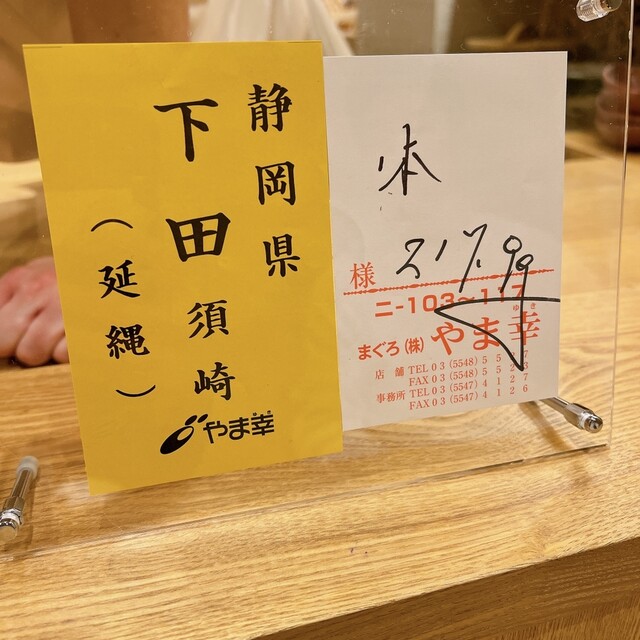 静岡県
下田須崎
（延縄）
やま幸
様
ニ-103〜117
まぐろ(株)やま幸
ゆき
店舗 TEL 03 (5548) 5 5 2 7
FAX 03 (5548) 5 5 2 3
事務所 TEL 03 (5547) 4 1 2 7
FAX 03 (5547) 4 1 2 6